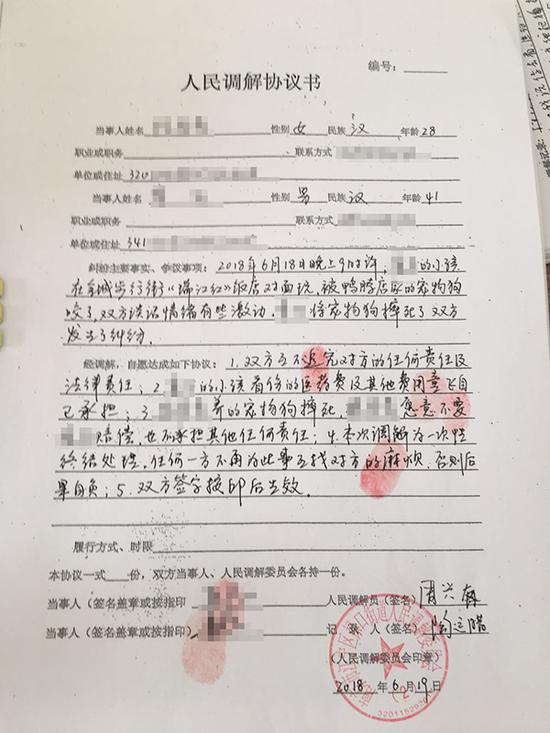 编号:
人民调解协议书
当事人姓名 性别 女 民族 汉 年龄 28
职业或职务 联系方式
单位或住址 320
当事人姓名 性别 男 民族 汉 年龄 41
职业或职务 联系方式
单位或住址 341
纠纷主要事实、争议事项: 2018年6月18日晚上9时许, 的小孩
在金城步行街《瑞江红》饭店对面玩, 被鸭膀店的宠物狗
咬了, 双方谈话情绪有些激动, 将宠物狗摔死了双方
发生了纠纷.
经调解, 自愿达成如下协议: 1. 双方互不追究对方的任何责任及
法律责任; 2. 的小孩看伤的医药费及其他费用 自
己承担; 3. 养的宠物狗摔死, 愿意不要
赔偿, 也不承担其他任何责任; 4. 本次调解为一次性
终结处理, 任何一方不再为此事互找对方的麻烦. 否则后
果自负; 5. 双方签字按印后生效.
履行方式、时限
本协议一式 份, 双方当事人、人民调解委员会各持一份。
当事人 (签名盖章或按指印 人民调解员 (签名) 周兴
当事人 (签名盖章或按指印) 记 录 人 (签名)
(人民调解委员会印章)
2018 年 6 月 19 日
人民调解委员会
(2)